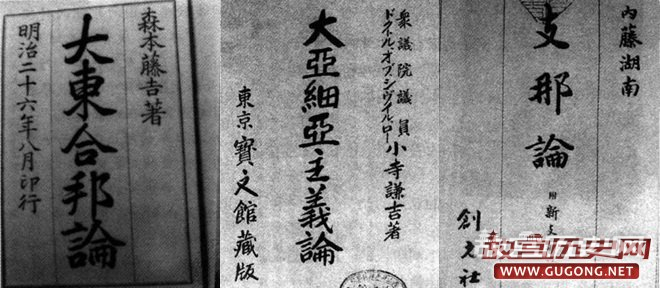 森本藤吉著
大東合邦論
明治二十六年八月印行
衆議院議員
ドクトルオブシヴイルロー
小寺謙吉著
大亞細亞主義論
東京寳文館藏版
内藤湖南
支那論
附新支
創元社
故宫历史网
WWW.GUGONG.NET